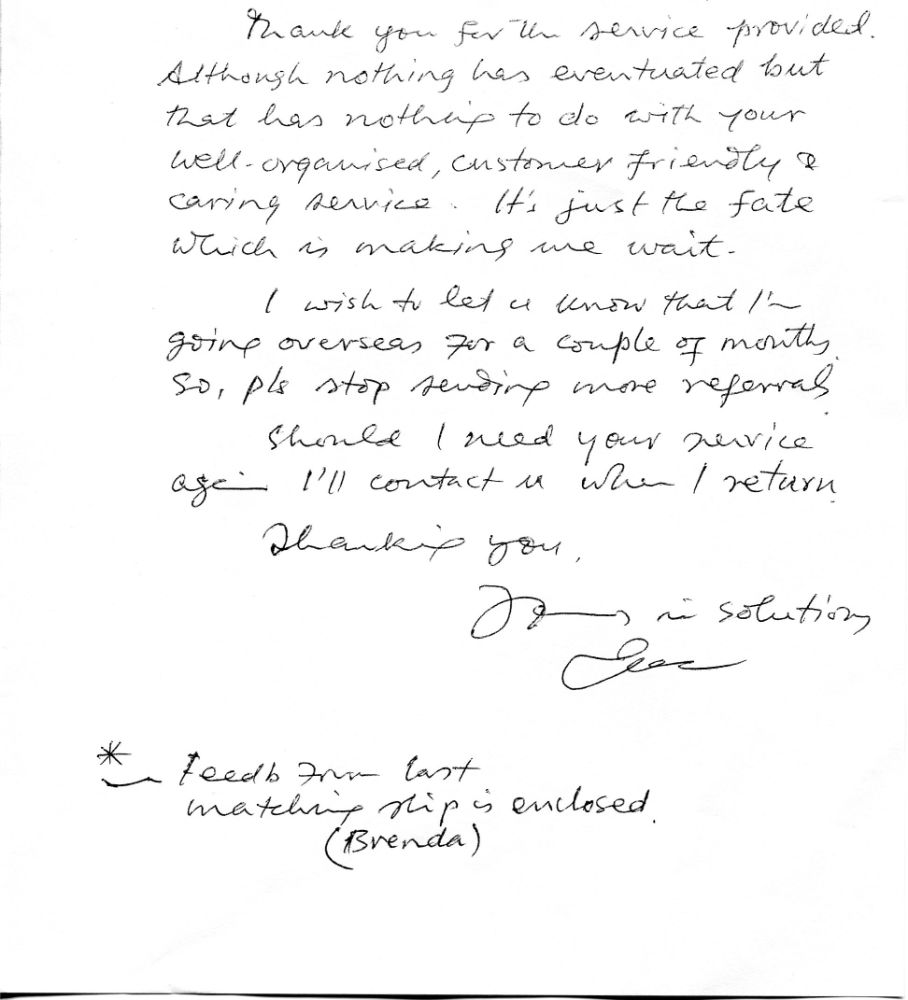 Thank you for the service provided.
Although nothing has eventuated but
that has nothing to do with your
well-organised, customer friendly &
caring service. It's just the fate
which is making me wait.
I wish to let u know that I'm
going overseas for a couple of months.
So, pls stop sending more referrals.
Should I need your service
again I'll contact u when I return.
Thanking you,
in solution
* Feedb from last
matching slip is enclosed.
(Brenda)